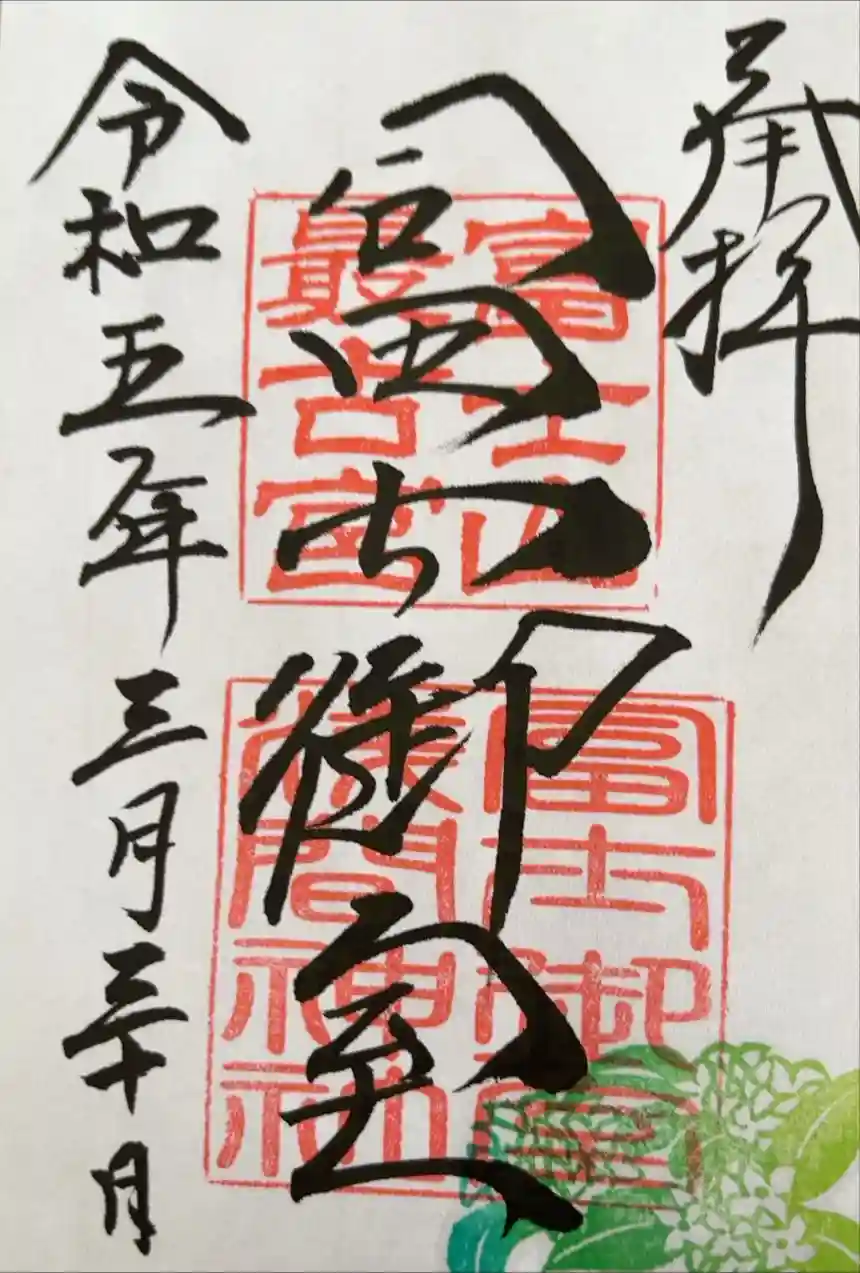 奉拝
冨士御室
富士山
最古宮
冨士御室
浅間神社
令和五年三月三十日